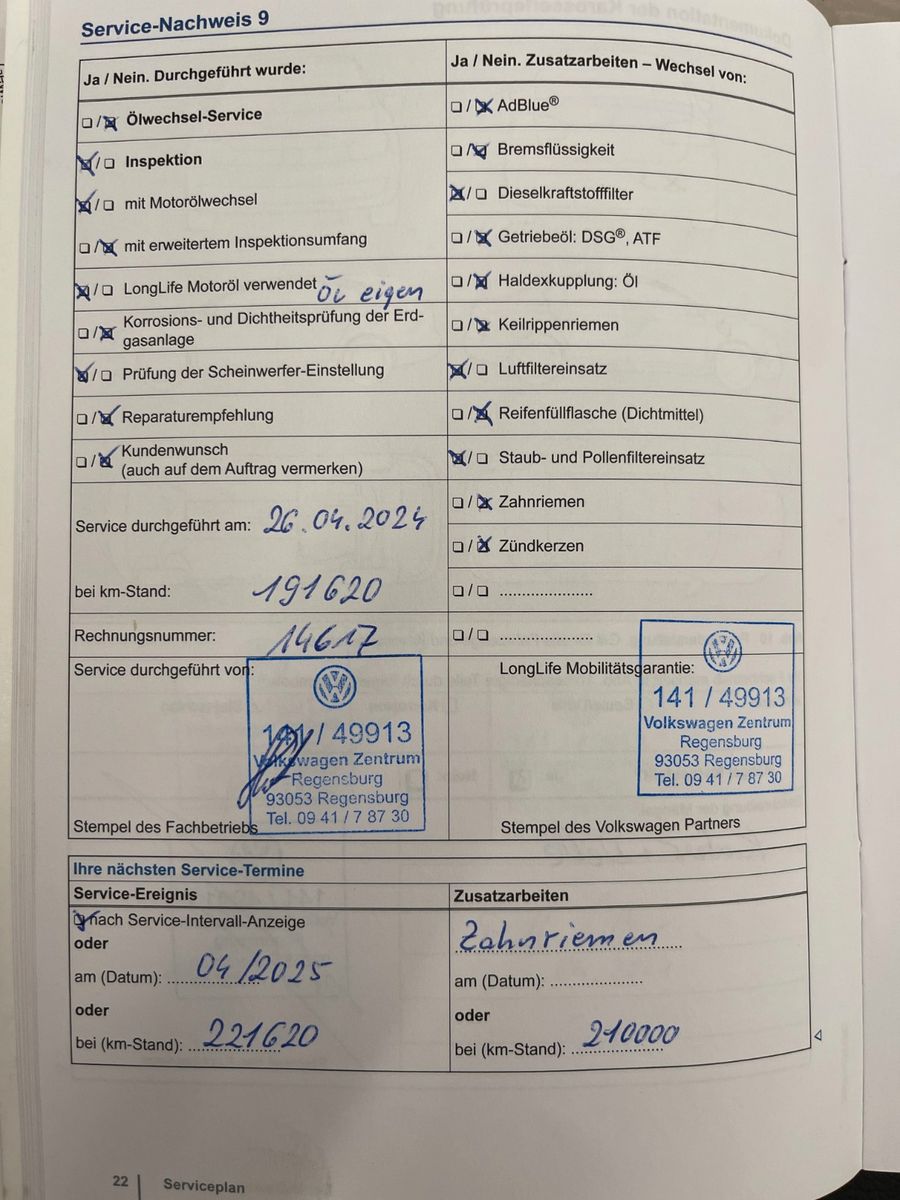 Service-Nachweis 9
Ja / Nein. Durchgeführt wurde:
☐/☒ Ölwechsel-Service
☒/☐ Inspektion
☒/☐ mit Motorölwechsel
☐/☒ mit erweitertem Inspektionsumfang
☒/☐ LongLife Motoröl verwendet Öl eigen
☐/☒ Korrosions- und Dichtheitsprüfung der Erd-
gasanlage
☒/☐ Prüfung der Scheinwerfer-Einstellung
☐/☒ Reparaturempfehlung
☐/☒ Kundenwunsch
(auch auf dem Auftrag vermerken)
Service durchgeführt am: 26.04.2024
bei km-Stand: 191620
Rechnungsnummer: 14617
Service durchgeführt von:
141 / 49913
Volkswagen Zentrum
Regensburg
93053 Regensburg
Tel. 09 41 / 7 87 30
Stempel des Fachbetriebs
Ja / Nein. Zusatzarbeiten – Wechsel von:
☐/☒ AdBlue®
☐/☒ Bremsflüssigkeit
☒/☐ Dieselkraftstofffilter
☐/☒ Getriebeöl: DSG®, ATF
☐/☒ Haldexkupplung: Öl
☐/☒ Keilrippenriemen
☒/☐ Luftfiltereinsatz
☐/☒ Reifenfüllflasche (Dichtmittel)
☒/☐ Staub- und Pollenfiltereinsatz
☐/☒ Zahnriemen
☐/☒ Zündkerzen
☐/☐ .....................
☐/☐ .....................
LongLife Mobilitätsgarantie:
141 / 49913
Volkswagen Zentrum
Regensburg
93053 Regensburg
Tel. 09 41 / 7 87 30
Stempel des Volkswagen Partners
Ihre nächsten Service-Termine
Service-Ereignis
☒ nach Service-Intervall-Anzeige
oder
am (Datum): 04/2025
oder
bei (km-Stand): 221620
Zusatzarbeiten
Zahnriemen
am (Datum): .....................
oder
bei (km-Stand): 210000
22 Serviceplan